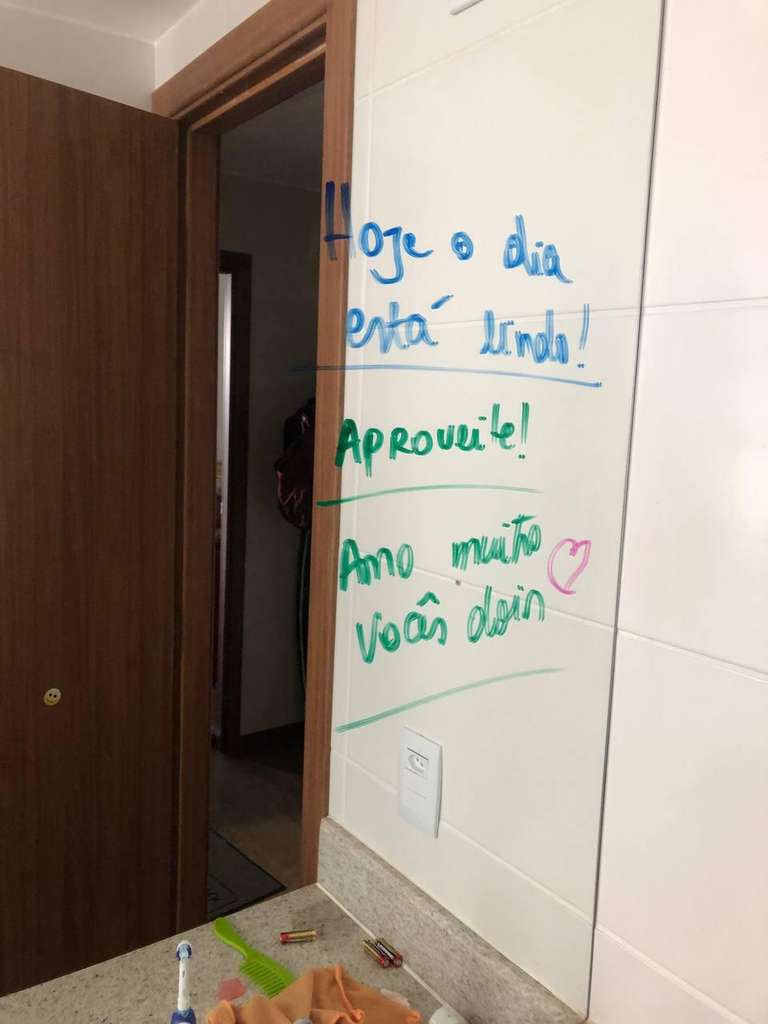 Hoje o dia
está lindo!
Aproveite!
Amo muito
vocês dois